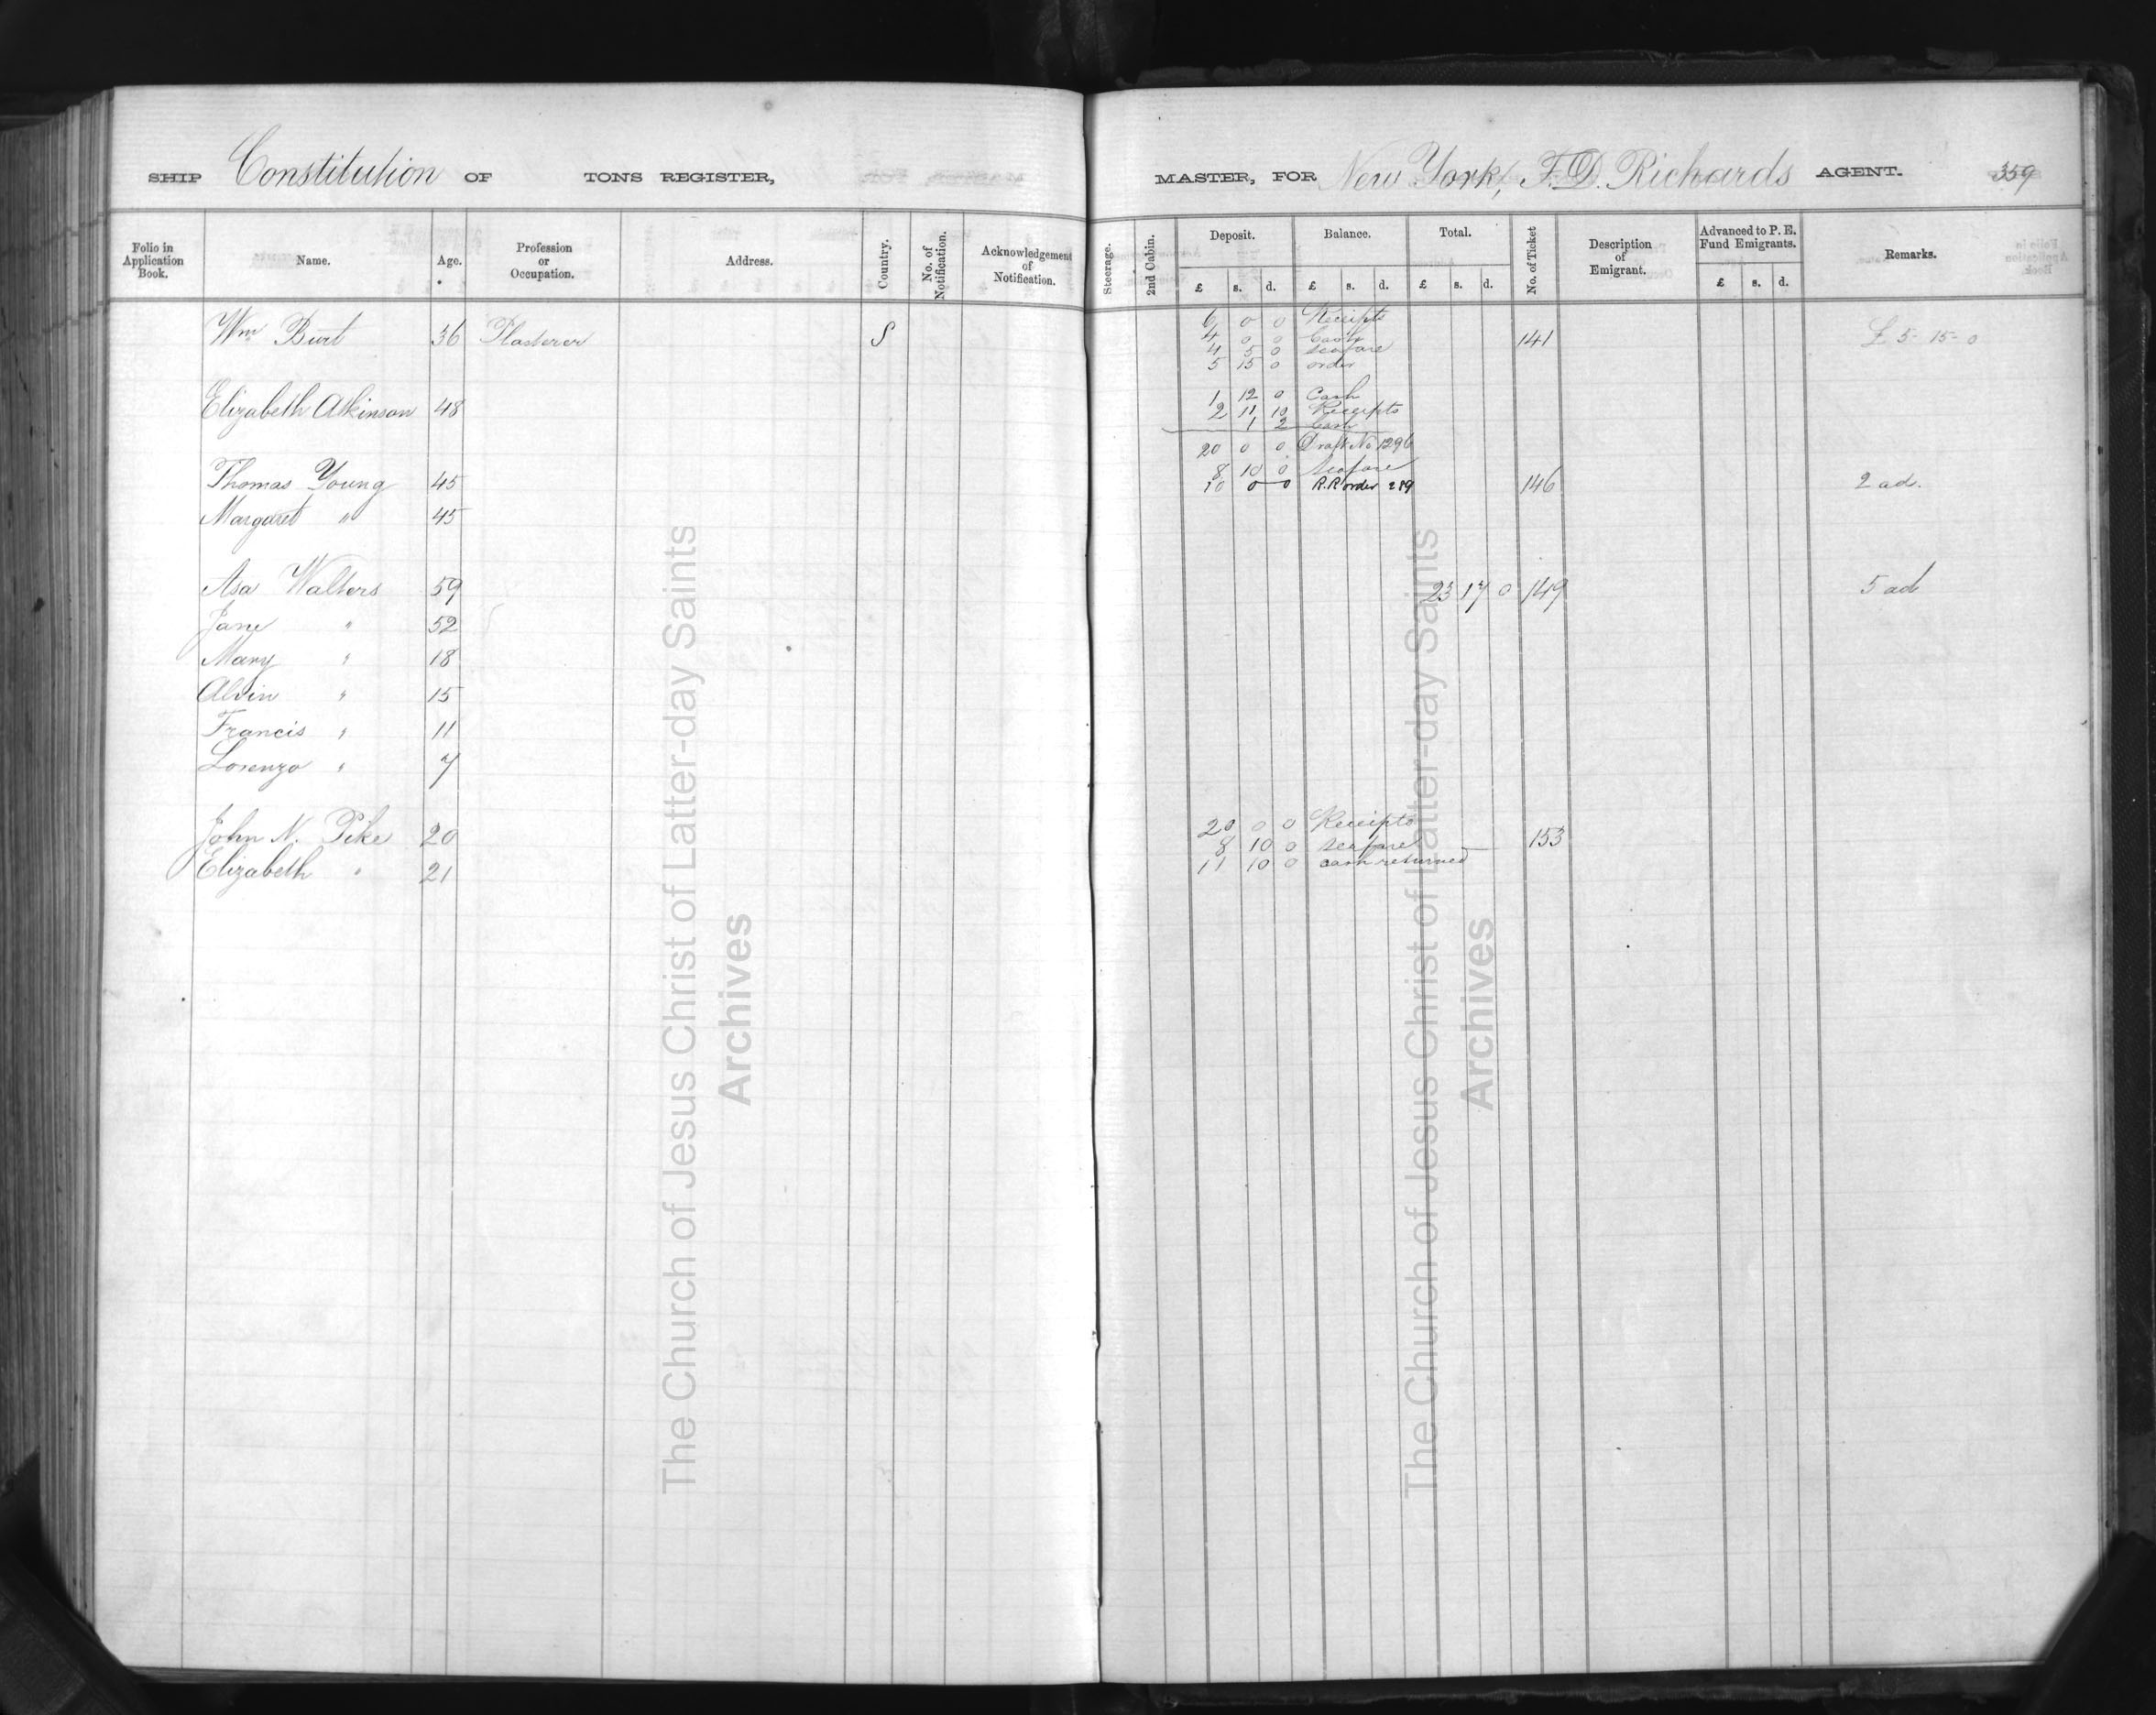 SHIP Constitution OF TONS REGISTER, MASTER, FOR New York, F. D. Richards AGENT. 359
Folio in Application Book. Name. Age. Profession or Occupation. Address. Country. No. of Notification. Acknowledgement of Notification. Steerage. 2nd Cabin. Deposit. Balance. Total. No. of Ticket Description of Emigrant. Advanced to P. E. Fund Emigrants. Remarks.
£ s. d. £ s. d. £ s. d. £ s. d.
6 0 0 Receipts
Wm Burt 36 Plasterer S 4 0 0 Cash 141 £ 5-15-0
4 5 0 seafare
5 15 0 order
1 12 0 Cash
Elizabeth Atkinson 48 2 11 10 Receipts
1 2 Cash
20 0 0 Draft No 1296
8 10 0 Seafare
Thomas Young 45 10 0 0 R.R order 289 146 2 ad.
Margaret " 45
Asa Walters 59 23 17 0 149 5 ad
Jane " 52
Mary " 18
Alvin " 15
Francis " 11
Lorenzo " 7
20 0 0 Receipts
John N. Pike 20 8 10 0 seafare 153
Elizabeth " 21 11 10 0 cash returned
The Church of Jesus Christ of Latter-day Saints
Archives
The Church of Jesus Christ of Latter-day Saints
Archives